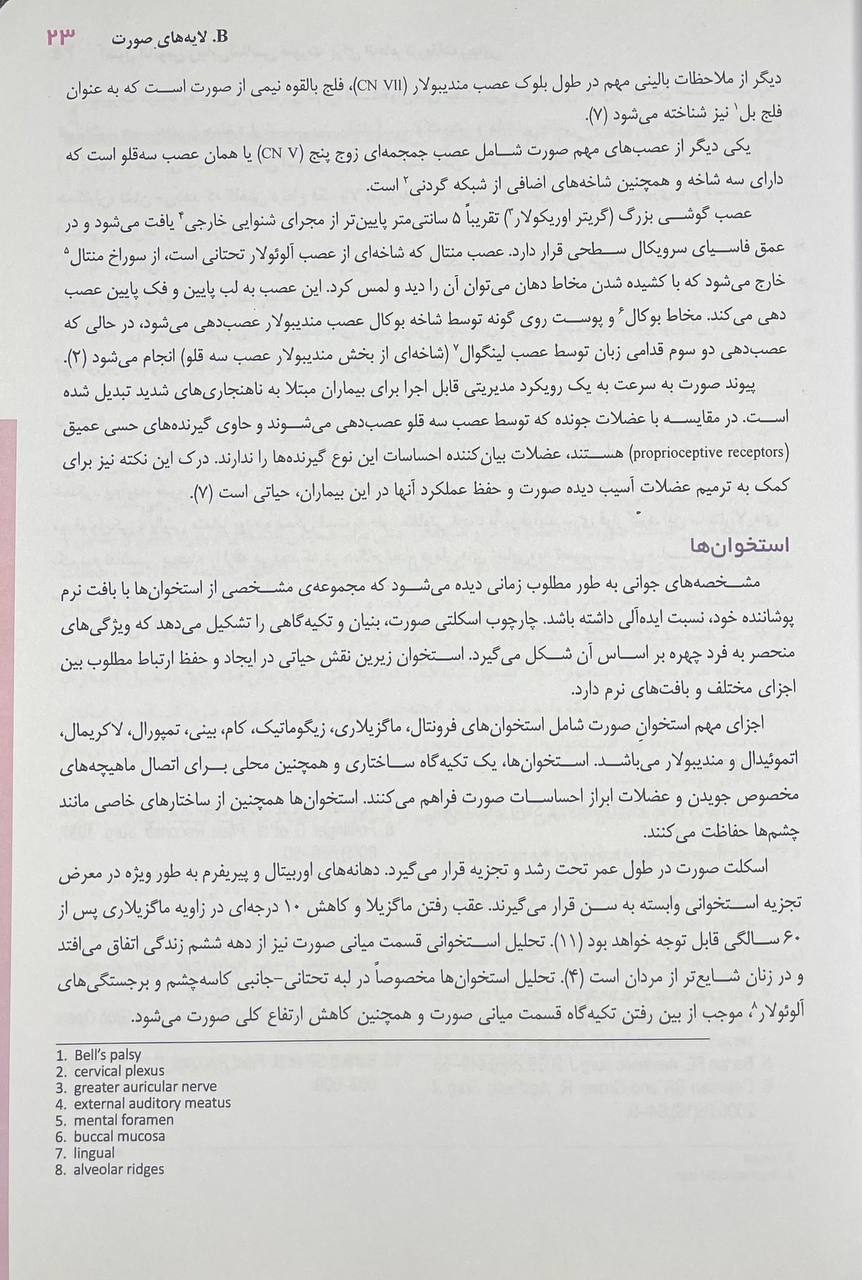 B. لایه‌های صورت ۲۳
دیگر از ملاحظات بالینی مهم در طول بلوک عصب مندیبولار (CN VII)، فلج بالقوه نیمی از صورت است که به عنوان
فلج بل۱ نیز شناخته می‌شود (۷).
یکی دیگر از عصب‌های مهم صورت شامل عصب جمجمه‌ای زوج پنج (CN V) یا همان عصب سه‌قلو است که
دارای سه شاخه و همچنین شاخه‌های اضافی از شبکه گردنی۲ است.
عصب گوشی بزرگ (گریتر اوریکولار۳) تقریباً ۵ سانتی‌متر پایین‌تر از مجرای شنوایی خارجی۴ یافت می‌شود و در
عمق فاسیای سرویکال سطحی قرار دارد. عصب منتال که شاخه‌ای از عصب آلوئولار تحتانی است، از سوراخ منتال۵
خارج می‌شود که با کشیده شدن مخاط دهان می‌توان آن را دید و لمس کرد. این عصب به لب پایین و فک پایین عصب
دهی می‌کند. مخاط بوکال۶ و پوست روی گونه توسط شاخه بوکال عصب مندیبولار عصب‌دهی می‌شود، در حالی که
عصب‌دهی دو سوم قدامی زبان توسط عصب لینگوال۷ (شاخه‌ای از بخش مندیبولار عصب سه قلو) انجام می‌شود (۲).
پیوند صورت به سرعت به یک رویکرد مدیریتی قابل اجرا برای بیماران مبتلا به ناهنجاری‌های شدید تبدیل شده
است. در مقایسه با عضلات جونده که توسط عصب سه قلو عصب‌دهی می‌شوند و حاوی گیرنده‌های حسی عمیق
(proprioceptive receptors) هستند، عضلات بیان‌کننده احساسات این نوع گیرنده‌ها را ندارند. درک این نکته نیز برای
کمک به ترمیم عضلات آسیب دیده صورت و حفظ عملکرد آنها در این بیماران، حیاتی است (۷).
استخوان‌ها
مشخصه‌های جوانی به طور مطلوب زمانی دیده می‌شود که مجموعه‌ی مشخصی از استخوان‌ها با بافت نرم
پوشاننده خود، نسبت ایده‌آلی داشته باشد. چارچوب اسکلتی صورت، بنیان و تکیه‌گاهی را تشکیل می‌دهد که ویژگی‌های
منحصر به فرد چهره بر اساس آن شکل می‌گیرد. استخوان زیرین نقش حیاتی در ایجاد و حفظ ارتباط مطلوب بین
اجزای مختلف و بافت‌های نرم دارد.
اجزای مهم استخوانِ صورت شامل استخوان‌های فرونتال، ماگزیلاری، زیگوماتیک، کام، بینی، تمپورال، لاکریمال،
اتموئیدال و مندیبولار می‌باشد. استخوان‌ها، یک تکیه‌گاه ساختاری و همچنین محلی برای اتصال ماهیچه‌های
مخصوص جویدن و عضلات ابراز احساسات صورت فراهم می‌کنند. استخوان‌ها همچنین از ساختارهای خاصی مانند
چشم‌ها حفاظت می‌کنند.
اسکلت صورت در طول عمر تحت رشد و تجزیه قرار می‌گیرد. دهانه‌های اوربیتال و پیریفرم به طور ویژه در معرض
تجزیه استخوانی وابسته به سن قرار می‌گیرند. عقب رفتن ماگزیلا و کاهش ۱۰ درجه‌ای در زاویه ماگزیلاری پس از
۶۰ سالگی قابل توجه خواهد بود (۱۱). تحلیل استخوانی قسمت میانی صورت نیز از دهه ششم زندگی اتفاق می‌افتد
و در زنان شایع‌تر از مردان است (۴). تحلیل استخوان‌ها مخصوصاً در لبه تحتانی-جانبی کاسه‌چشم و برجستگی‌های
آلوئولار۸، موجب از بین رفتن تکیه‌گاه قسمت میانی صورت و همچنین کاهش ارتفاع کلی صورت می‌شود.
1. Bell's palsy
2. cervical plexus
3. greater auricular nerve
4. external auditory meatus
5. mental foramen
6. buccal mucosa
7. lingual
8. alveolar ridges